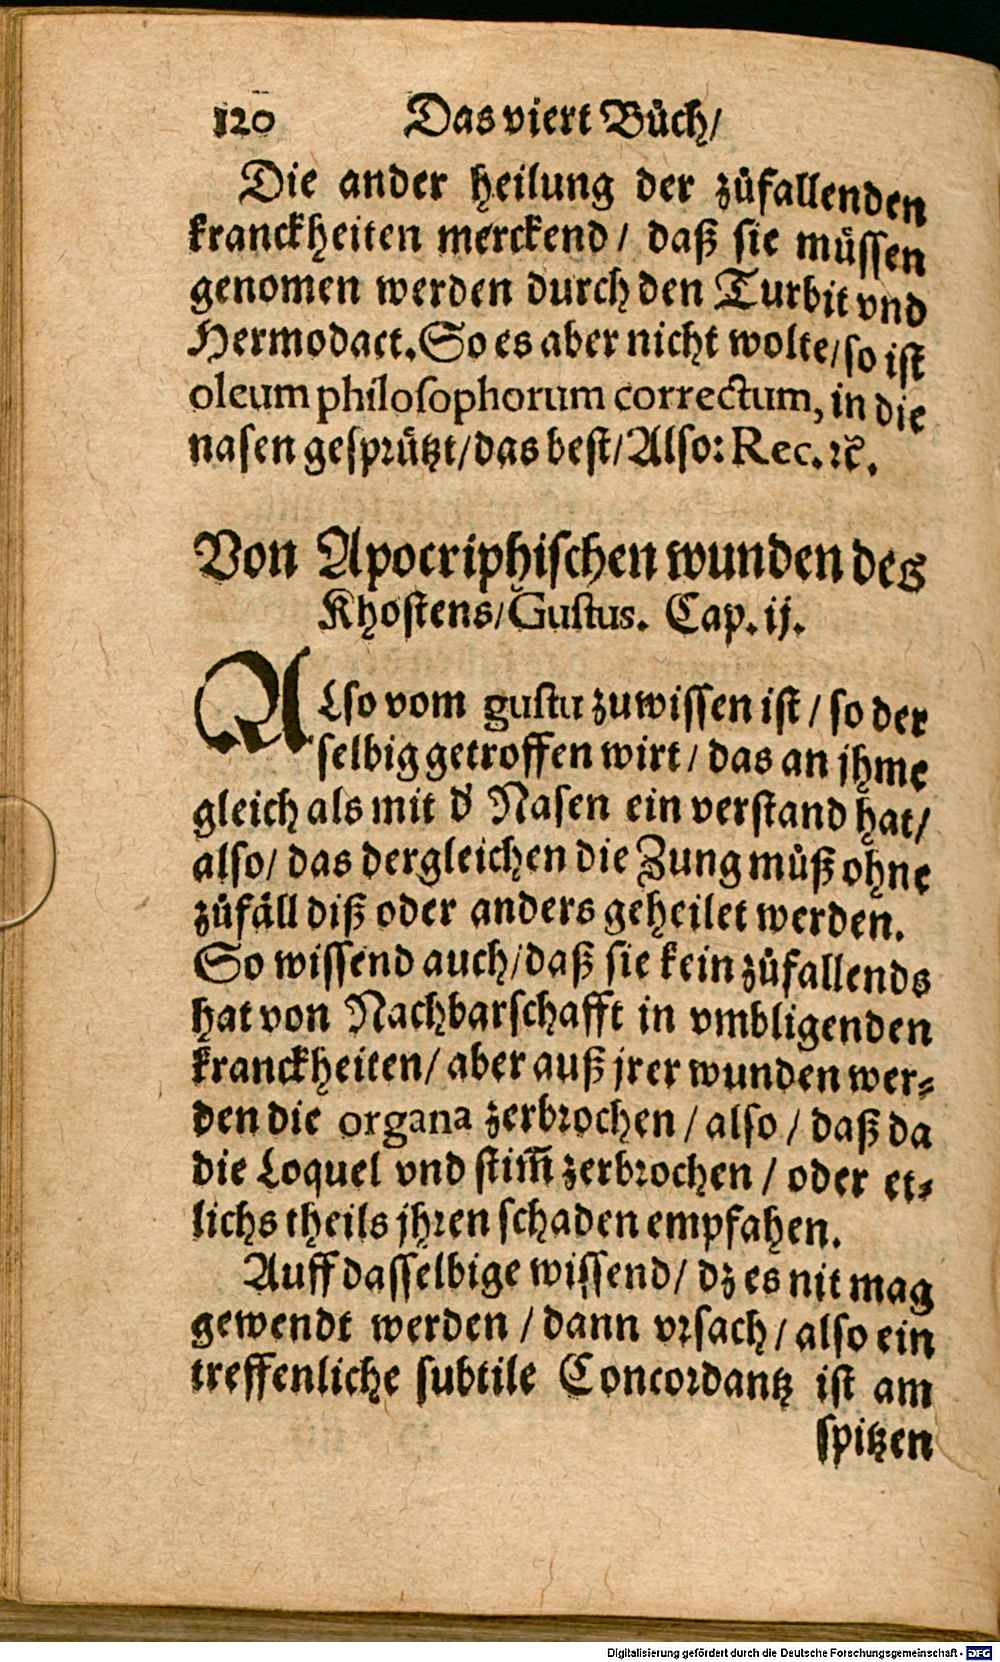 120 Das viert Bůch/
Die ander heilung der zůfallenden
kranckheiten merckend/ daß sie müssen
genomen werden durch den Turbit vnd
Hermodact. So es aber nicht wolte/ so ist
oleum philosophorum correctum, in die
nasen gesprützt/ das best/ Also: Rec. ꝛc.
Von Apocriphischen wunden des
Khostens/ Gustus. Cap. ij.
ALso vom gustu zuwissen ist/ so der
selbig getroffen wirt/ das an jhme
gleich als mit d' Nasen ein verstand hat/
also/ das dergleichen die Zung můß ohne
zůfäll diß oder anders geheilet werden.
So wissend auch/ daß sie kein zůfallends
hat von Nachbarschafft in vmbligenden
kranckheiten/ aber auß jrer wunden wer⸗
den die organa zerbrochen/ also/ daß da
die Loquel vnd stim̅ zerbrochen/ oder et⸗
lichs theils jhren schaden empfahen.
Auff dasselbige wissend/ dz es nit mag
gewendt werden/ dann vrsach/ also ein
treffenliche subtile Concordantz ist am
spitzen
Digitalisierung gefördert durch die Deutsche Forschungsgemeinschaft - DFG